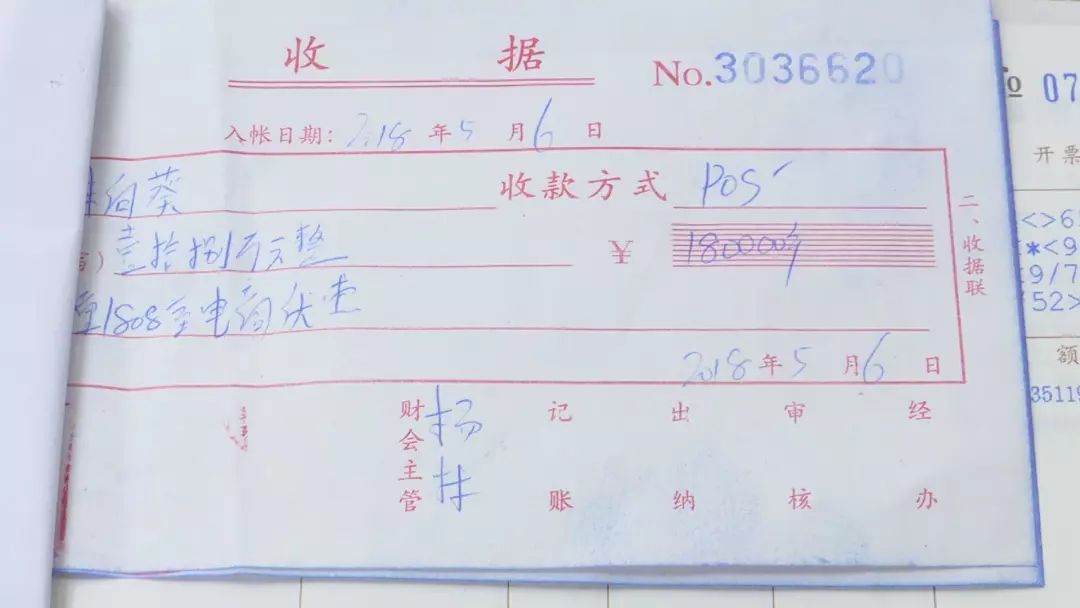 收 据
No.3036620
入帐日期: 2018 年 5 月 6 日
向葵 收款方式 POS
) 壹拾捌万元整 ¥ 180000
1808室电商
2018 年 5 月 6 日
二、收据联
财会主管 杨 记账 出纳 审核 经办
07
开票
<>6
*<9
9/7
52>
额
35119